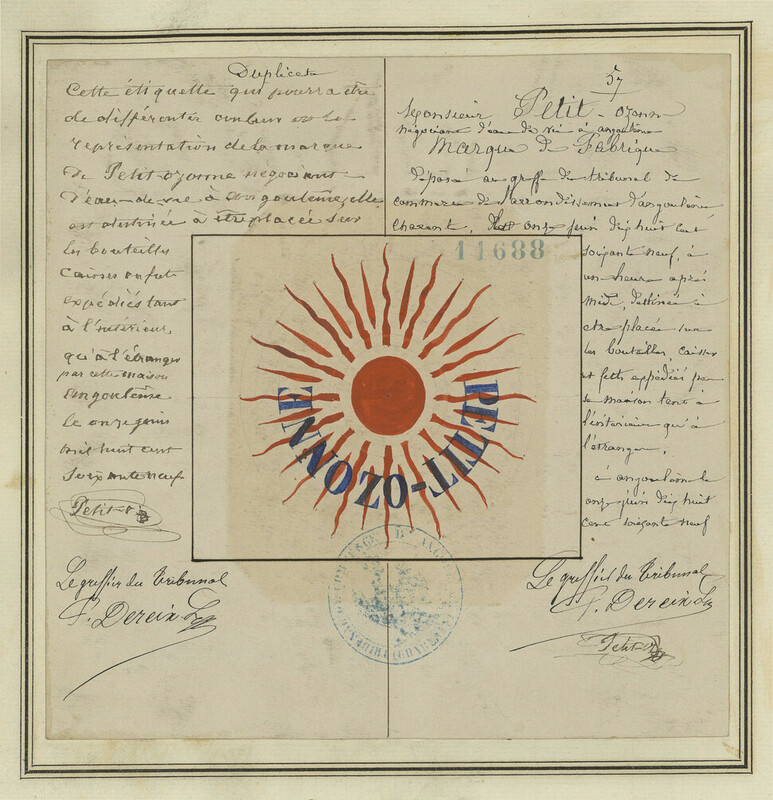 Duplicata
Cette étiquette qui pourra être
de différentes couleur est la
représentation de la marque
de Petit-ozonne négociant
d'eau-de-vie à angoulême, elle
est destinée à être placée sur
les bouteilles
Caisses en fut
expédiés tant
à l'intérieur,
qu'à l'étranger
par cette maison
angoulême
le onze juin
mil huit cent
soixante neuf
Petit-O
Le greffier du Tribunal
F. Dereix
57
Monsieur Petit-ozonne
négociant d'eau de vie à angoulême
Marque de Fabrique
Déposé au greffe du tribunal de
commerce de l'arrondissement d'angoulême
Charente, le onze juin dix huit cent
11688
soixante neuf, à
une heure après
midi, destinée à
être placée sur
les bouteilles, caisses
et futs expédiés par
sa maison tant à
l'intérieur qu'à
l'étranger.
à angoulême le
onze juin dix huit
cent soixante neuf
Le greffier du Tribunal
F. Dereix
Petit-O
PETIT-OZONNE
TRIBUNAL DE COMMERCE D'ANGOULÊME (CHARENTE)